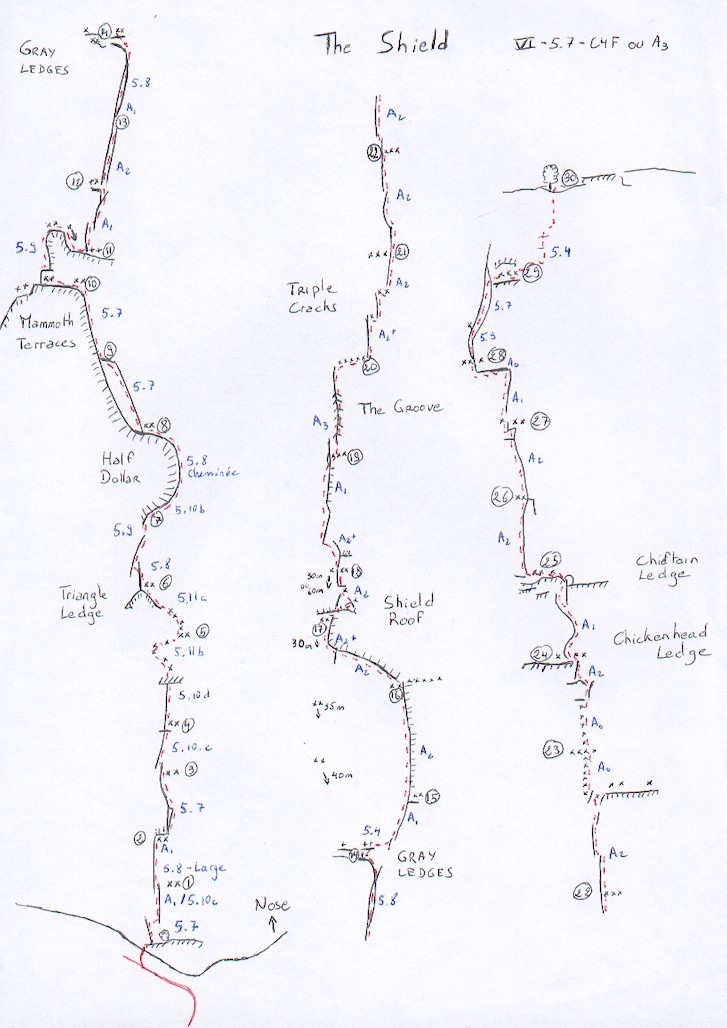 The Shield
VI - 5.7 - C4F ou A3
14
GRAY
LEDGES
5.8
A1
13
A2
12
A1
11
5.9
10
Mammoth
Terraces
5.7
9
5.7
8
Half
Dollar
5.8
Cheminée
5.10b
7
5.9
5.8
6
Triangle
Ledge
5.11a
5
5.11b
5.10d
4
5.10.c
3
5.7
2
A1
5.8 - Large
1
A1/5.10c
5.7
Nose
A2
22
A2
21
A2
Triple
Cracks
A2+
20
The Groove
A3
19
A1
A2+
18
30m
ou
60m
A2
Shield
Roof
17
30m
A2+
A2
16
35m
A2
40m
15
A1
5.4
14
GRAY
LEDGES
5.8
30
5.4
29
5.7
5.9
28
A0
A1
27
A2
26
A2
25
Chieftain
Ledge
A1
Chickenhead
Ledge
24
A2
A0
23
A0
A2
22